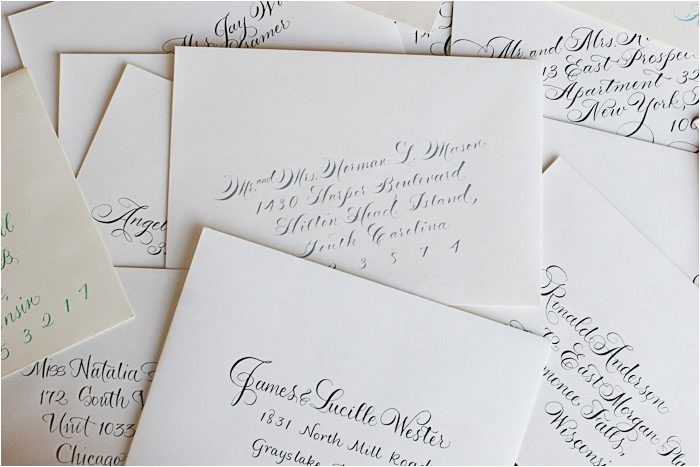 Mrs. Jay
Mr. and Mrs.
13 East Prospe
Apartment 32
New York,
100
Mr. and Mrs. Norman G. Mason
1430 Harper Boulevard
Hiltin Head Island,
South Carolina
3 5 7 4
Angel
B,
nsin
5 3 2 1 7
Miss Natalia
172 South
Unit 1033
Chicago
James & Lucille Wester
1831 North Mill Road
Grayslake
Ronald Anderson
72 East Morgan
mence Falls,
Wisconsin